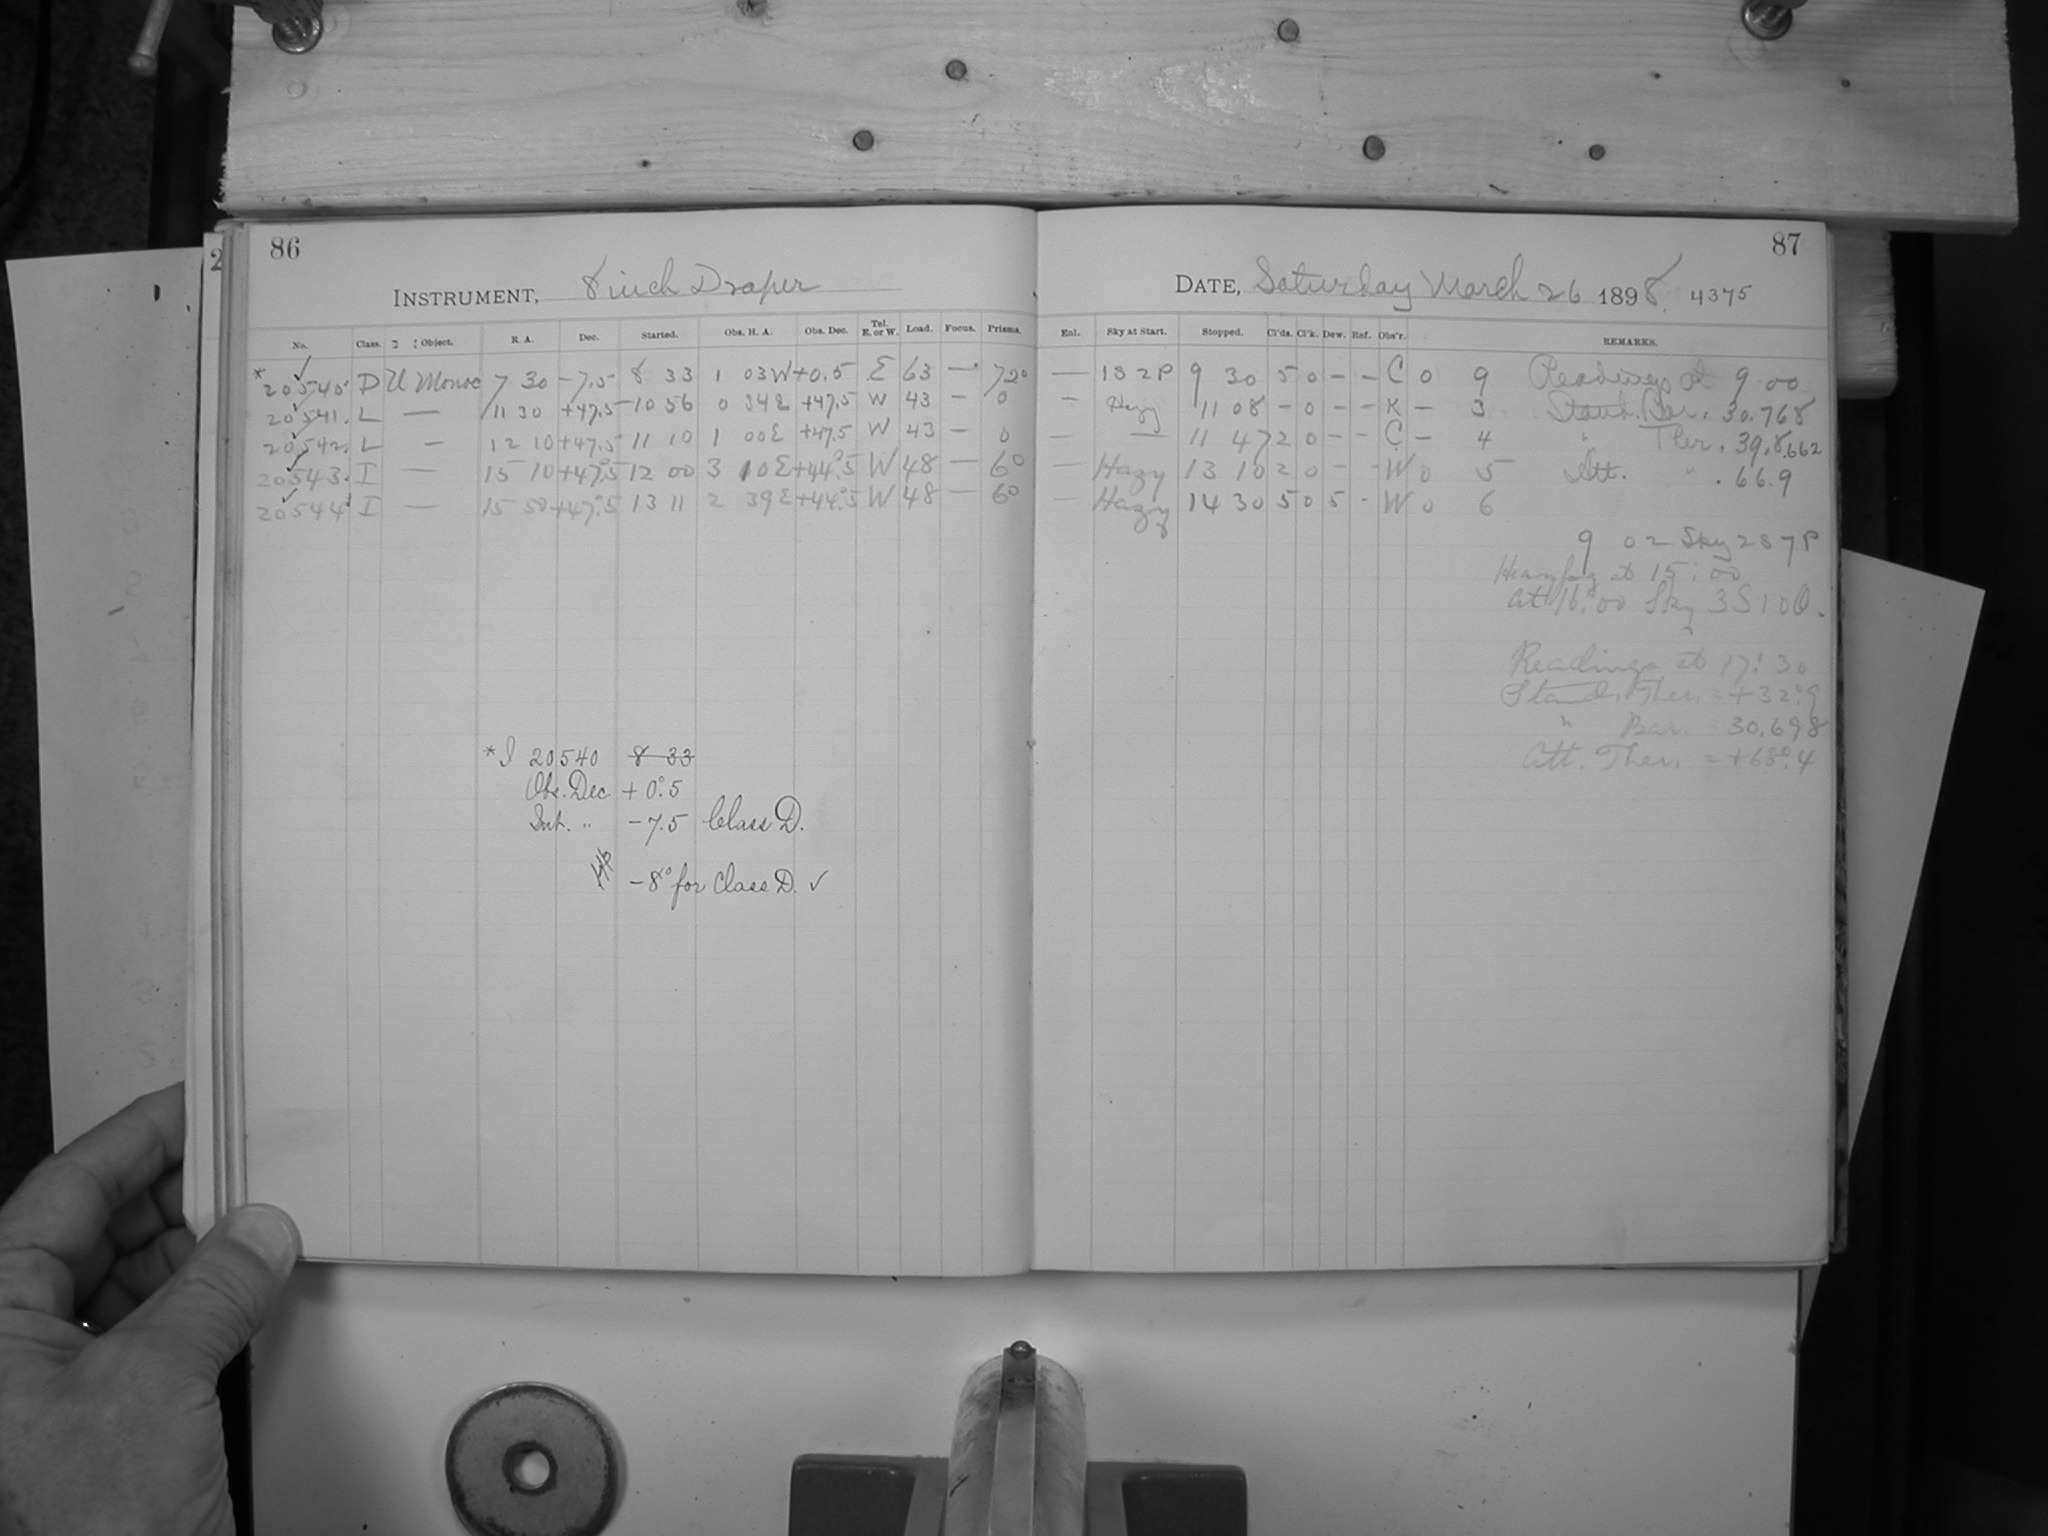 86
INSTRUMENT, 8 inch Draper
No. Class. Object. R. A. Dec. Started. Obs. H. A. Obs. Dec. Tel. E. or W. Load. Focus. Prisms.
* 20540 D U Monoc 7 30 -7.5 8 33 1 03W +0.5 E 63 — 72°
20541. L — 11 30 +47.5 10 56 0 34E +47.5 W 43 — 0
20542. L — 12 10 +47.5 11 10 1 00E +47.5 W 43 — 0
20543. I — 15 10 +47°.5 12 00 3 10E +44°.5 W 48 — 6°
20544 I — 15 50 +47°.5 13 11 2 39E +44°.5 W 48 — 6°
* I 20540 8 33
Obs. Dec. +0°.5
Int. " -7.5 Class D.
-8° for Class D. ✓
87
DATE, Saturday March 26 1898. 4375
Enl. Sky at Start. Stopped. Cl'ds. Cl'k. Dew. Ref. Obs'r. REMARKS.
— 1S 2P 9 30 5 0 - - C 0 9 Readings at 9 00
- Hazy 11 08 - 0 - - K - 3 Stand. Bar. 30.768
— — 11 47 2 0 - - C - 4 " Ther. 39.8 .662
— Hazy 13 10 2 0 - - W 0 5 Att. " . 66.9
— Hazy 14 30 5 0 5 - W 0 6
9 02 Sky 2S 7P
Heavy fog at 15:00
at 16:00 Sky 3S 10O.
Readings at 17:30
Stand. Ther. = +32°.9
" Bar. = 30.698
Att. Ther. = +68°.4